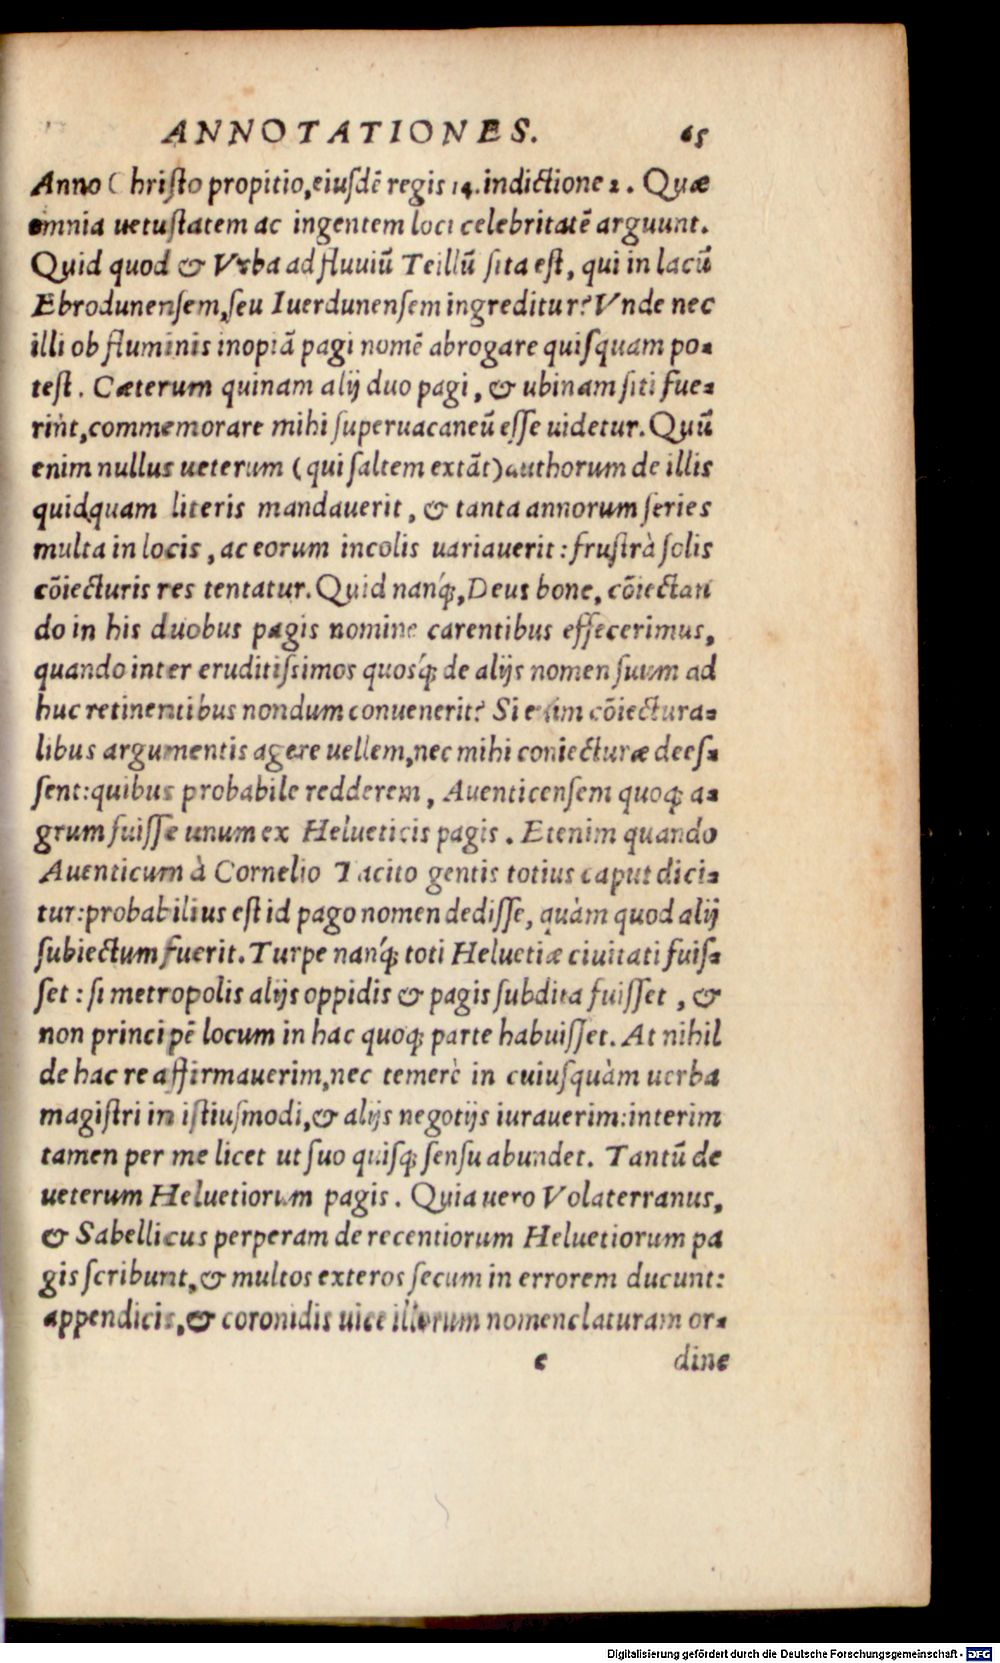 ANNOTATIONES. 65
Anno Christo propitio, eiusdē regis 14. indictione 2. Quæ
omnia uetustatem ac ingentem loci celebritatē arguunt.
Quid quod & Vrba ad fluuiū Teillū sita est, qui in lacū
Ebrodunensem, seu Iuerdunensem ingreditur? Vnde nec
illi ob fluminis inopiā pagi nomē abrogare quisquam po-
test. Cæterum quinam alij duo pagi, & ubinam siti fue-
rint, commemorare mihi superuacaneū esse uidetur. Quū
enim nullus ueterum (qui saltem extāt) authorum de illis
quidquam literis mandauerit, & tanta annorum series
multa in locis, ac eorum incolis uariauerit: frustrà solis
cōiecturis res tentatur. Quid nanq́;, Deus bone, cōiectan
do in his duobus pagis nomine carentibus effecerimus,
quando inter eruditissimos quosq́; de alijs nomen suum ad
huc retinentibus nondum conuenerit? Si enim cōiectura-
libus argumentis agere uellem, nec mihi coniecturæ dees-
sent: quibus probabile redderem, Auenticensem quoq; a-
grum fuisse unum ex Helueticis pagis. Etenim quando
Auenticum à Cornelio Tacito gentis totius caput dici-
tur: probabilius est id pago nomen dedisse, quàm quod alij
subiectum fuerit. Turpe nanq́; toti Heluetiæ ciuitati fuis-
set: si metropolis alijs oppidis & pagis subdita fuisset, &
non principē locum in hac quoq; parte habuisset. At nihil
de hac re affirmauerim, nec temerè in cuiusquàm uerba
magistri in istiusmodi, & alijs negotijs iurauerim: interim
tamen per me licet ut suo quisq; sensu abundet. Tantū de
ueterum Heluetiorum pagis. Quia uero Volaterranus,
& Sabellicus perperam de recentiorum Heluetiorum pa
gis scribunt, & multos exteros secum in errorem ducunt:
appendicis, & coronidis uice illorum nomenclaturam or-
e dine
Digitalisierung gefördert durch die Deutsche Forschungsgemeinschaft - DFG